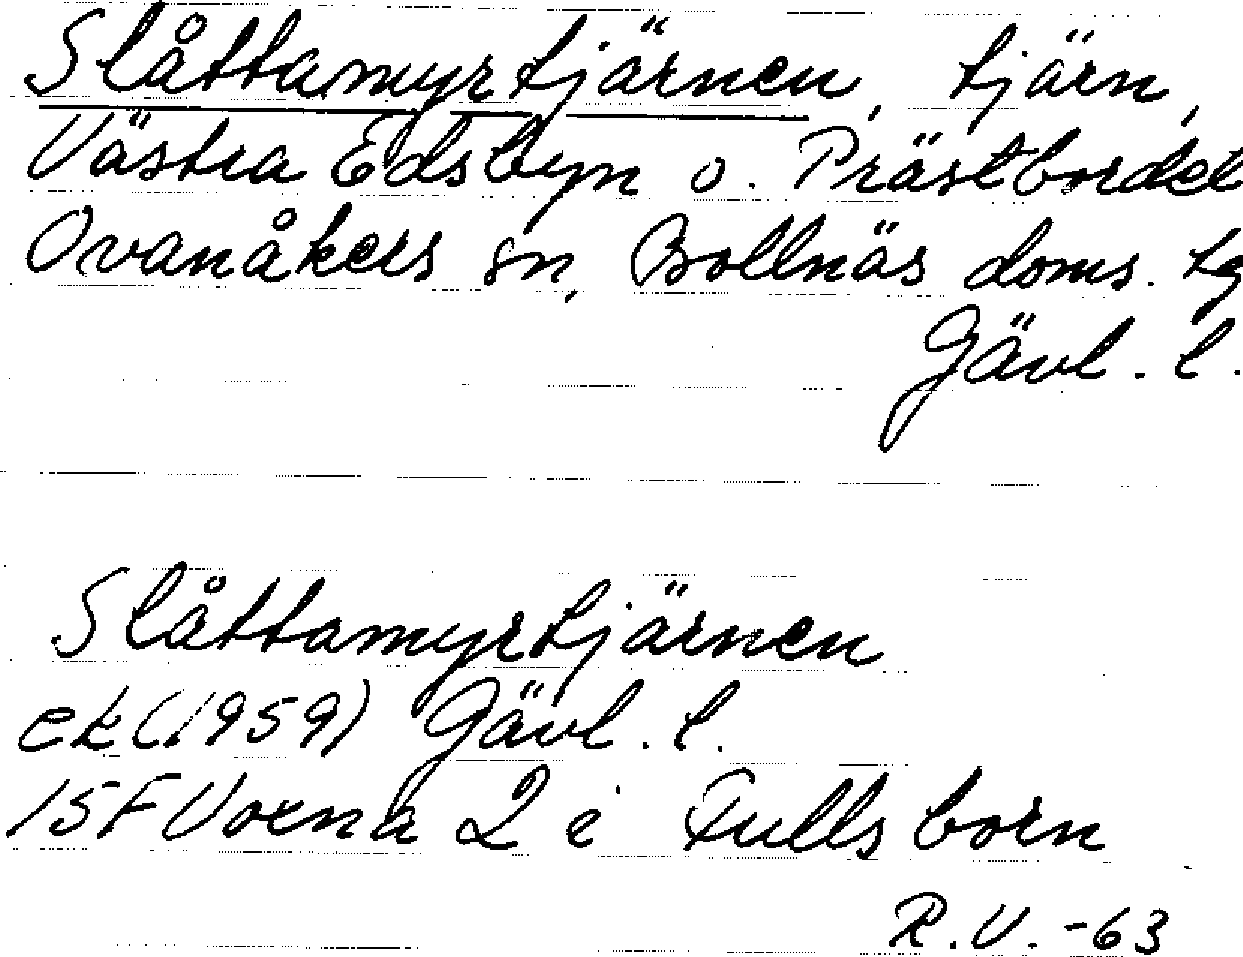 Slåttamyrtjärnen, tjärn,
Västra Edsbyn o. Prästbordet
Ovanåkers sn, Bollnäs doms. tg
Gävl. l.
Slåttamyrtjärnen
ek (1959) Gävl. l.
15F Voxna 2 e Fullsborn
R.U. -63